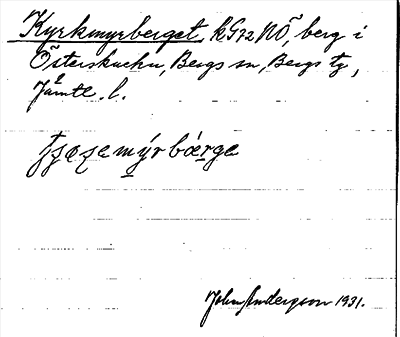 Kyrkmyrberget, KG22NÖ, berg i
Österskucku, Bergs sn, Bergs tg,
Jämtl. l.
mýrbærge
John Anderson 1931.